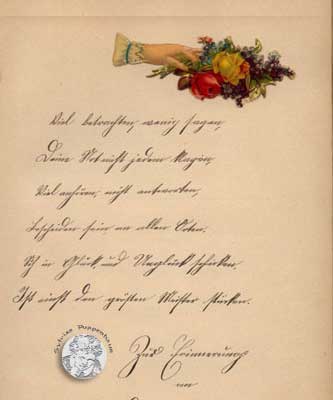 Viel betrachten, wenig sagen,
Deine Not nicht jedem klagen,
Viel anhören, nicht antworten,
Bescheiden sein an allen Orten.
Sich in Glück und Unglück schicken,
Ist eines der größten Meister stücken.
Zur Erinnerung
an
Sylvias Puppenhaus